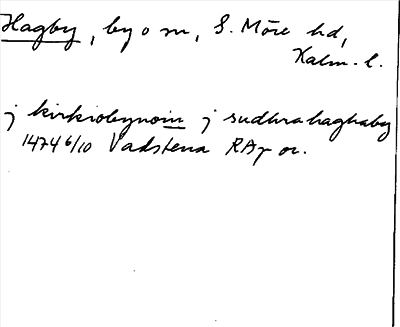 Hagby, by o sn, S. Möre hd,
Kalm. l.
j kirkiobynom j sudhrahaghaby
1474 6/10 Vadstena RAp or.